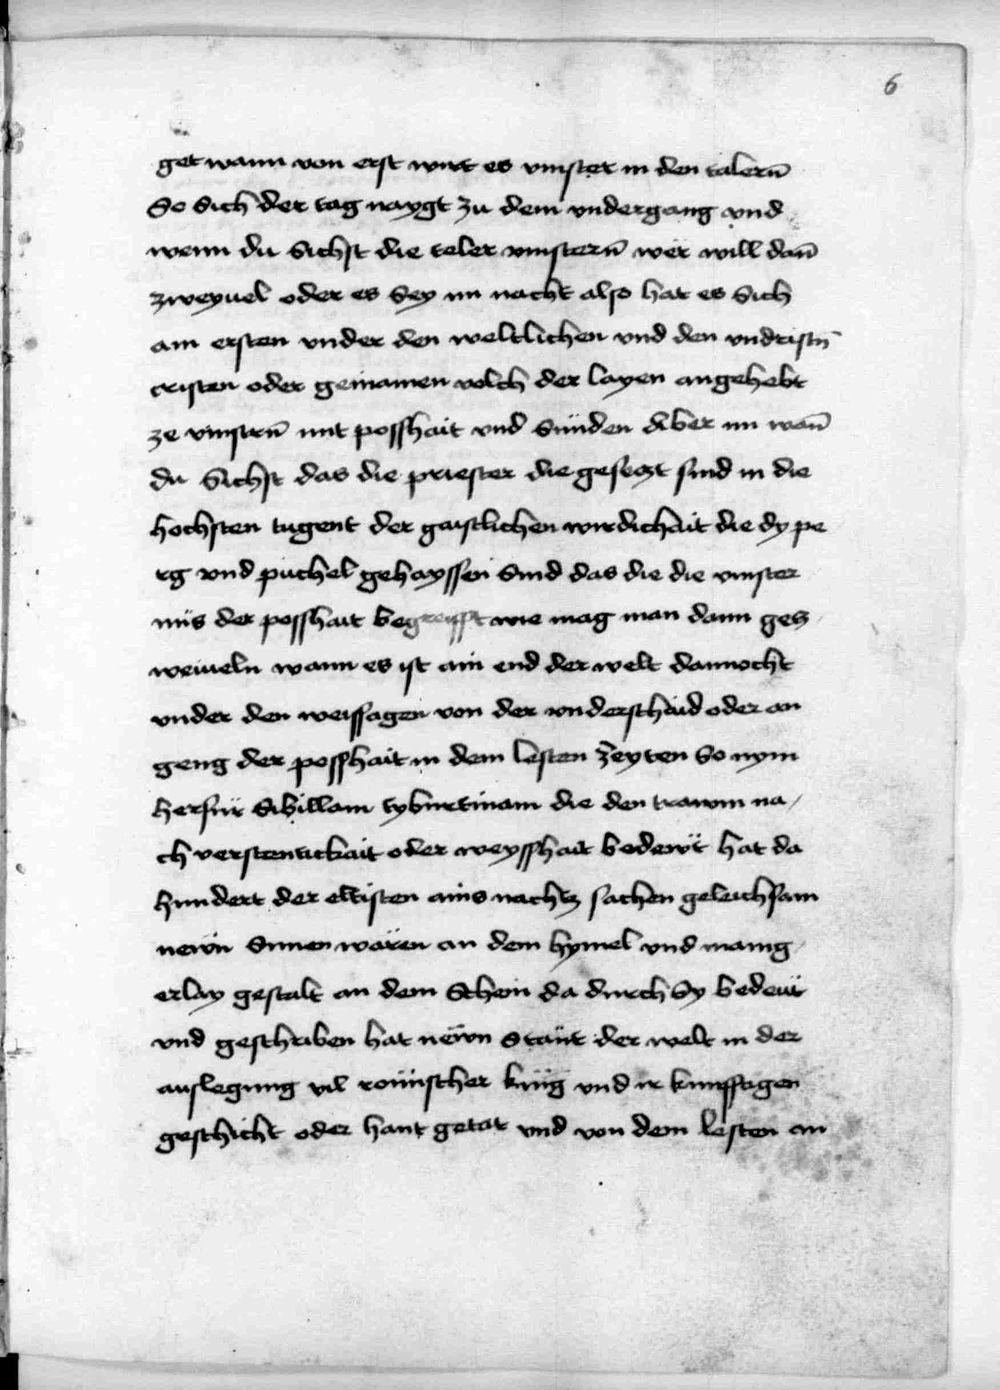 6
get wann von erst wirt es vinster in den talern̄
So Sich der tag naygt zu dem vndergang vnd
wenn du Sichst die teler vinstern̄ wer will dan̄
zweyuel oder es Sey nu nacht also hat es Sich
am ersten vnder den weltlichen vnd den vndristn̄
cristen oder gemainen volch der layen angehebt
ze vinstrn̄ mit posshait vnd Sünden Aber nu wan̄
du Sichst das die priester die gesetzt sind in die
hochsten tugent der gaistlichen wirdichait die dy pe
rg vnd püchel gehayssen Sind das die die vinster
nüs der posshait begreifft wie mag man dann gez
weiueln wann es ist ain end der welt dannocht
vnder den weissagen von der vnderschaid oder an
geng der posshait in dem lesten Zeyten So nym
herfür Sibillam tyburtinam die den trawm na/
ch verstentickait oder weysshait bedewt hat da
hundert der eltisten ains nachtz sachen geleichsam
newn Sunnen waren an dem hymel vnd manig/
erlay gestalt an dem Schein da durch Sy bedeüt
vnd geschriben hat newn Stänt der welt in der
auslegung vil römischer künig vnd ir kunfftigen
geschicht oder hant getat vnd von dem lesten an